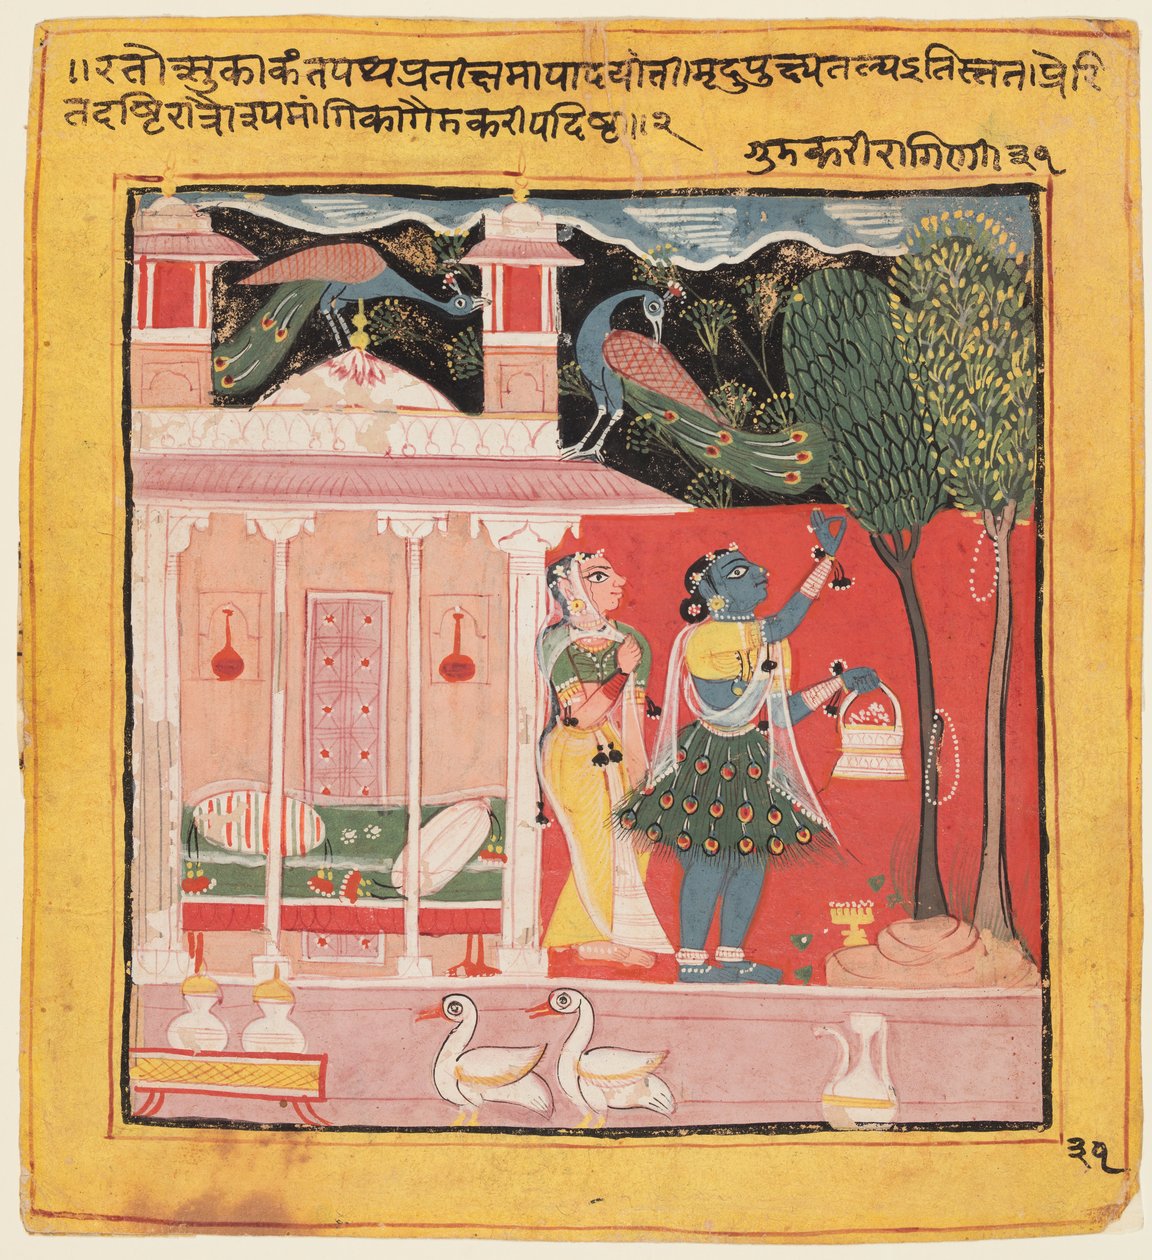 ॥रतोत्सुकाकंतपथप्रतीक्षमापादयंती।मृदुपुष्पतल्पऽतिस्तत।प्रेरि
तदृष्टिरात्रौरूपमांगिकागैमकरीपदिष्टा॥२
गुमकरीरागिणी।३१
३१